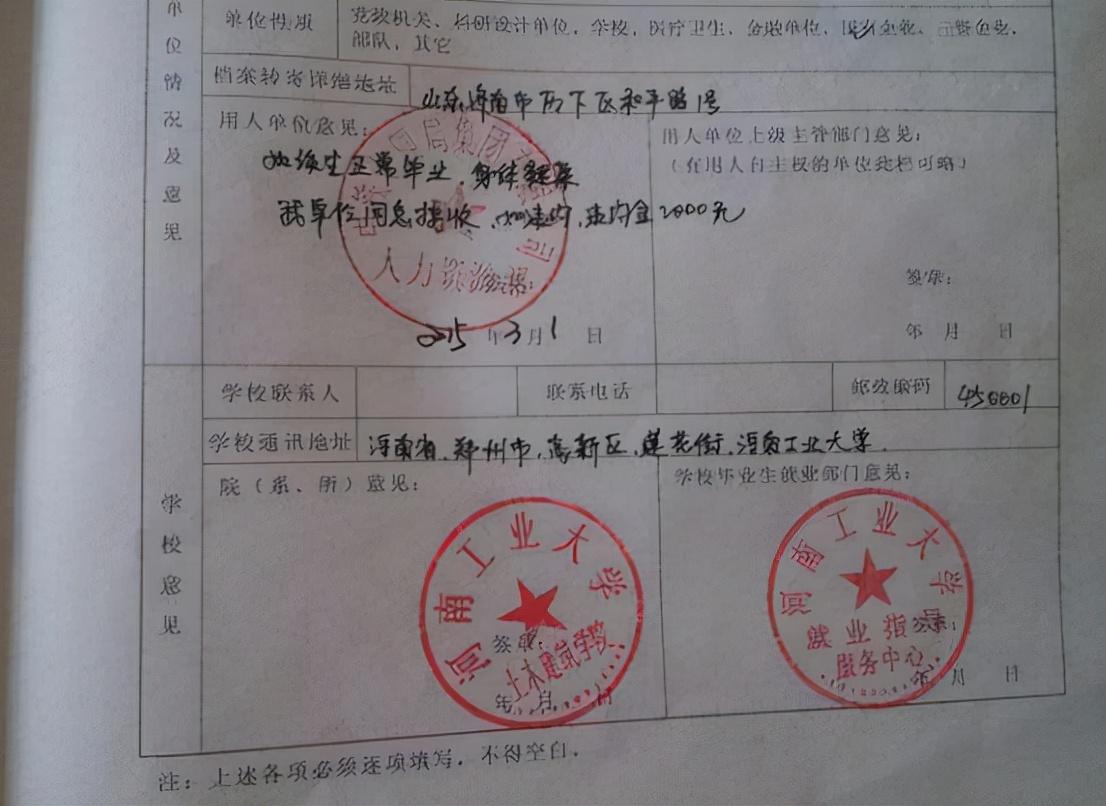 单位情况及意见
单位性质
党政机关、科研设计单位，学校，医疗卫生，金融单位，国有企业、三资企业，
部队，其它
档案转寄详细地址
山东济南市历下区和平路1号
用人单位意见：
如该生正常毕业，身体健康
我单位同意接收，如违约，违约金2000元
局集团
人力资源
2015年3月1日
用人单位上级主管部门意见：
（在用人自主权的单位此栏可略）
签章：
年 月 日
学校联系人
联系电话
邮政编码
450001
学校通讯地址
河南省，郑州市，高新区，莲花街，河南工业大学．
学校意见
院（系、所）意见：
河南工业大学
土木建筑学院
签章：
年 月 日
学校毕业生就业部门意见：
河南工业大学
就业指导
服务中心
年 月 日
注：上述各项必须逐项填写，不得空白．